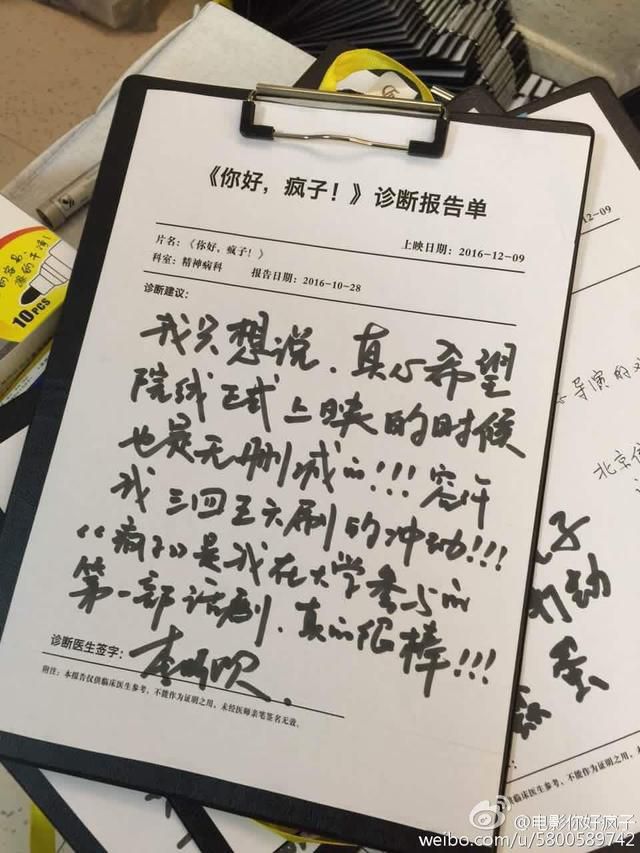 《你好，疯子！》诊断报告单
片名：《你好，疯子！》 上映日期：2016-12-09
科室：精神病科 报告日期：2016-10-28
诊断建议：
我只想说，真心希望
院线正式上映的时候
也是无删减的!!! 容许
我三四五六刷的冲动!!!
《疯子》是我在大学参与的
第一部话剧，真的很棒!!!
诊断医生签字：
附注：本报告仅供临床医生参考，不能作为证明之用，未经医师亲笔签名无效。
10PCS
12-09
导演的
北京
动
供临床医生参考，不能作为证明之用，未经医
@电影你好疯子
weibo.com/u/5800589742